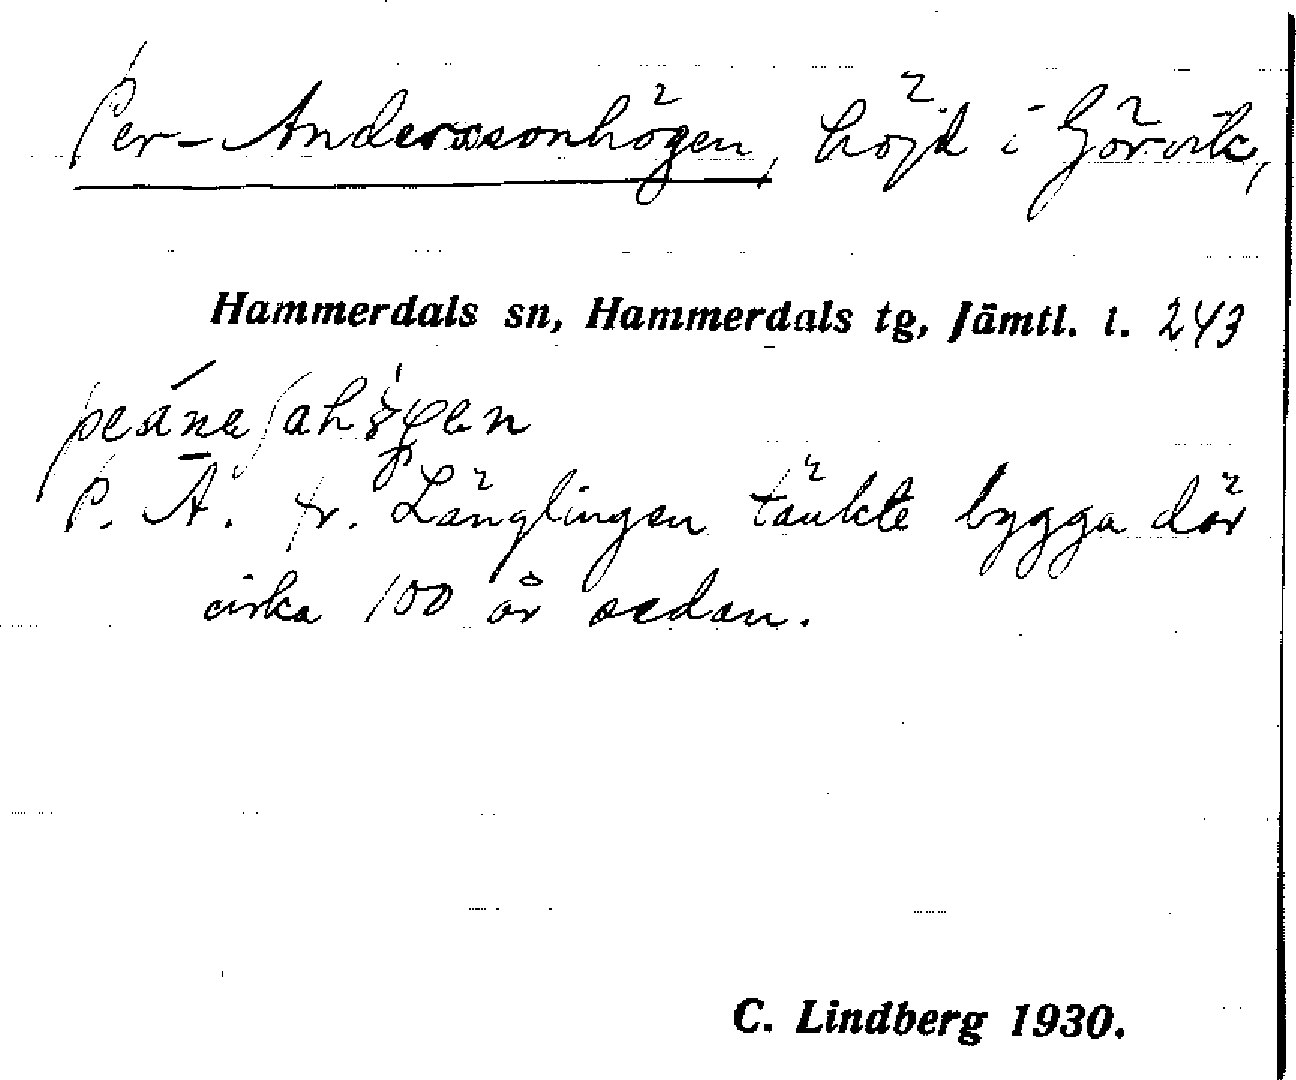 Per-Anderssonhögen, höjd i Görvik,
Hammerdals sn, Hammerdals tg, Jämtl. l. 243
P. A. fr. Länglingen tänkte bygga där
cirka 100 år sedan.
C. Lindberg 1930.